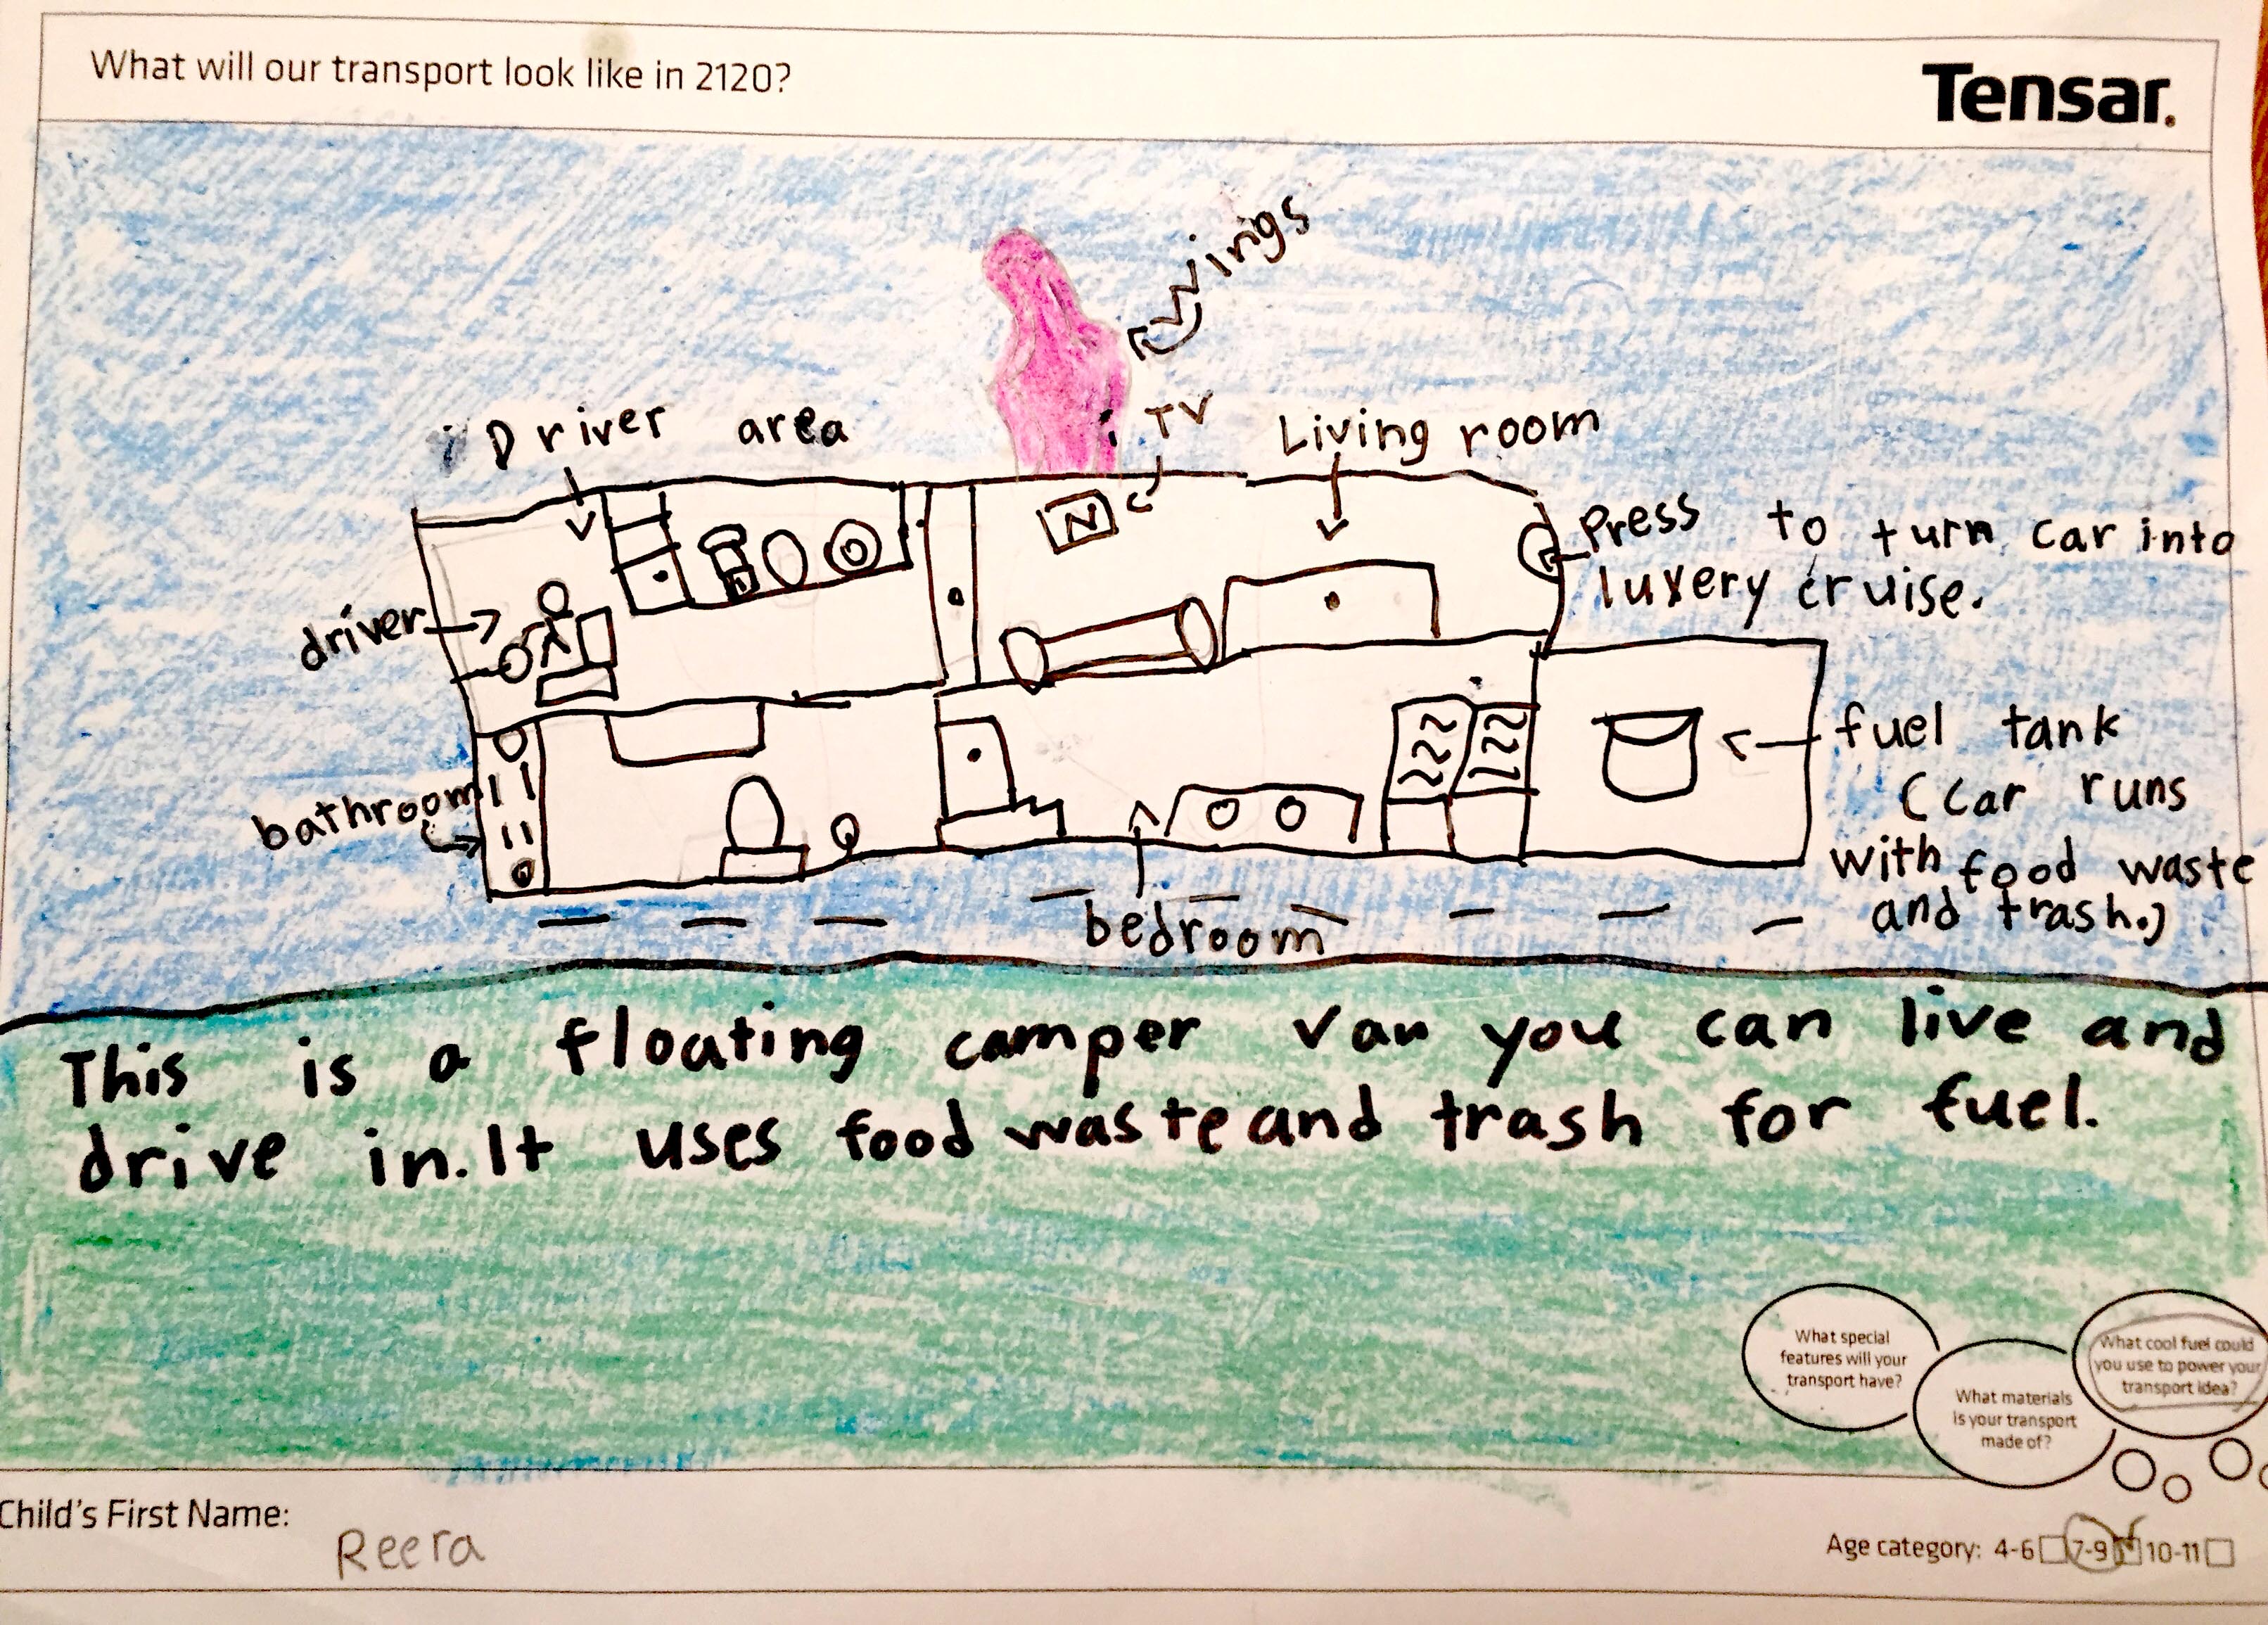 What will our transport look like in 2120?
Tensar.
Wings
Driver area
TV
Living room
N
Press to turn car into
luxery cruise.
driver
fuel tank
(Car runs
with food waste
and trash.)
bathroom
bedroom
This is a floating camper van you can live and
drive in. It uses food waste and trash for fuel.
What special
features will your
transport have?
What materials
is your transport
made of?
What cool fuel could
you use to power your
transport idea?
Child's First Name:
Reera
Age category: 4-6 7-9 10-11